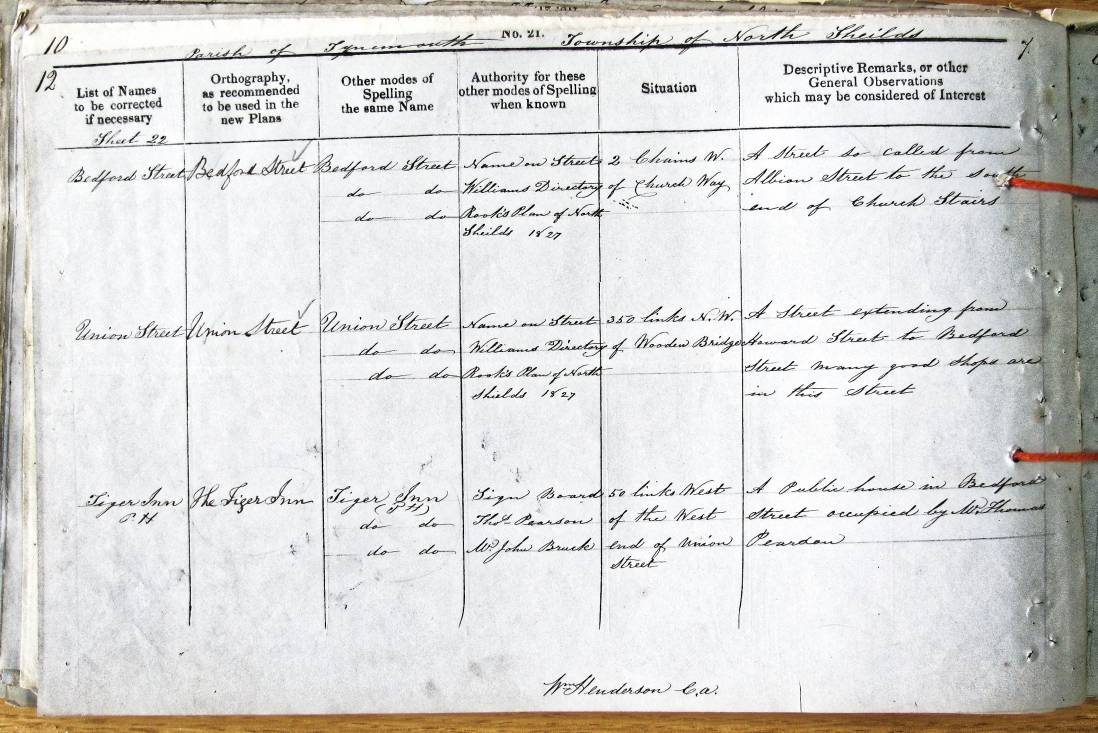 10
No. 21.
Parish of Tynemouth Township of North Sheilds
7
12
List of Names
to be corrected
if necessary
Orthography,
as recommended
to be used in the
new Plans
Other modes of
Spelling
the same Name
Authority for these
other modes of Spelling
when known
Situation
Descriptive Remarks, or other
General Observations
which may be considered of Interest
Sheet 22
Bedford Street
Bedford Street
Bedford Street
do do
do do
Name on Street
Williams Directory
Rook's Plan of North
Sheilds 1827
2 Chains W.
of Church Way
A Street so called from
Albion Street to the South
end of Church Stairs
Union Street
Union Street
Union Street
do do
do do
Name on Street
Williams Directory
Rook's Plan of North
Shields 1827
350 links N.W.
of Wooden Bridge
A Street extending from
Howard Street to Bedford
Street many good Shops are
in this Street
Tiger Inn
P.H
The Tiger Inn
Tiger Inn
(P H)
do do
do do
Sign Board
Thos. Pearson
Mr. John Bruck
50 links West
of the West
end of Union
Street
A Public house in Bedford
Street occupied by Mr. Thomas
Pearson
Wm Henderson C.a.